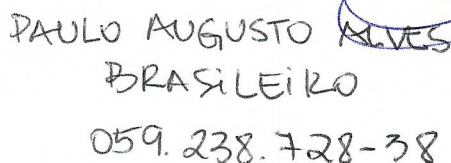 PAULO AUGUSTO ALVES
BRASiLEiRO
059.238.728-38